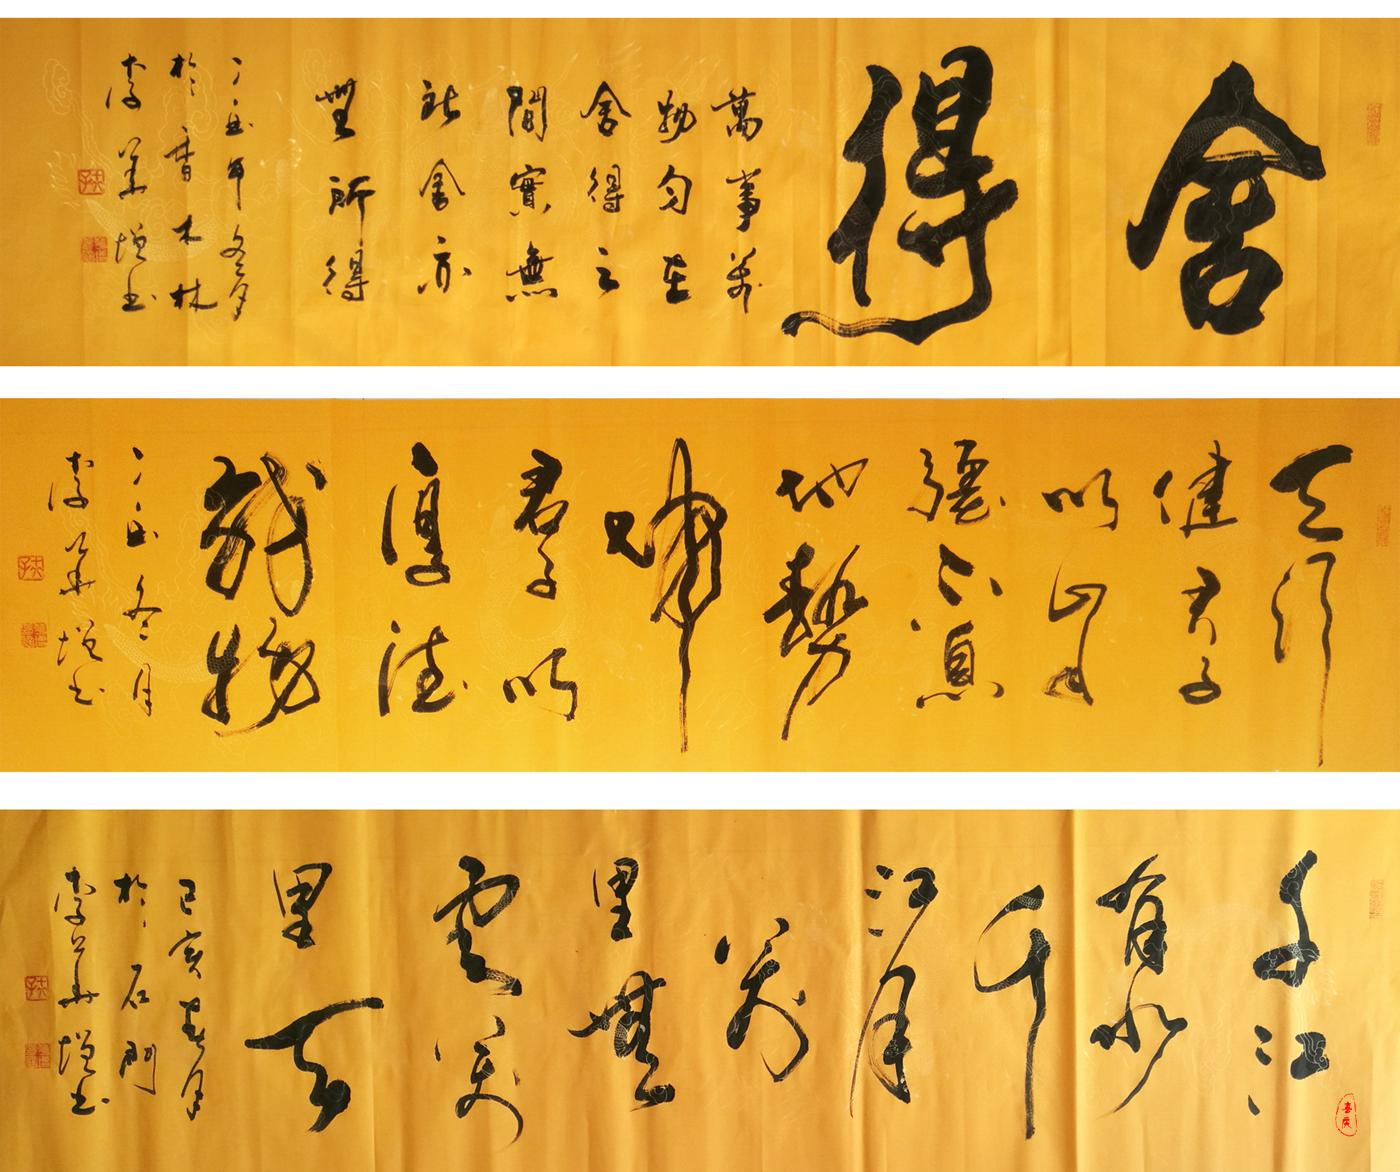 舍
得
萬事萬
物匀在
舍得之
間實無
所舍亦
無所得
丁酉年冬月
於香木林
李華增书
天行
健君子
以自
彊不息
地勢
坤
君子以
厚德
載物
丁酉冬月
李華增书
千江
有水
千
江月
萬
里無
雲萬
里天
己亥春月
於石門
李華增书